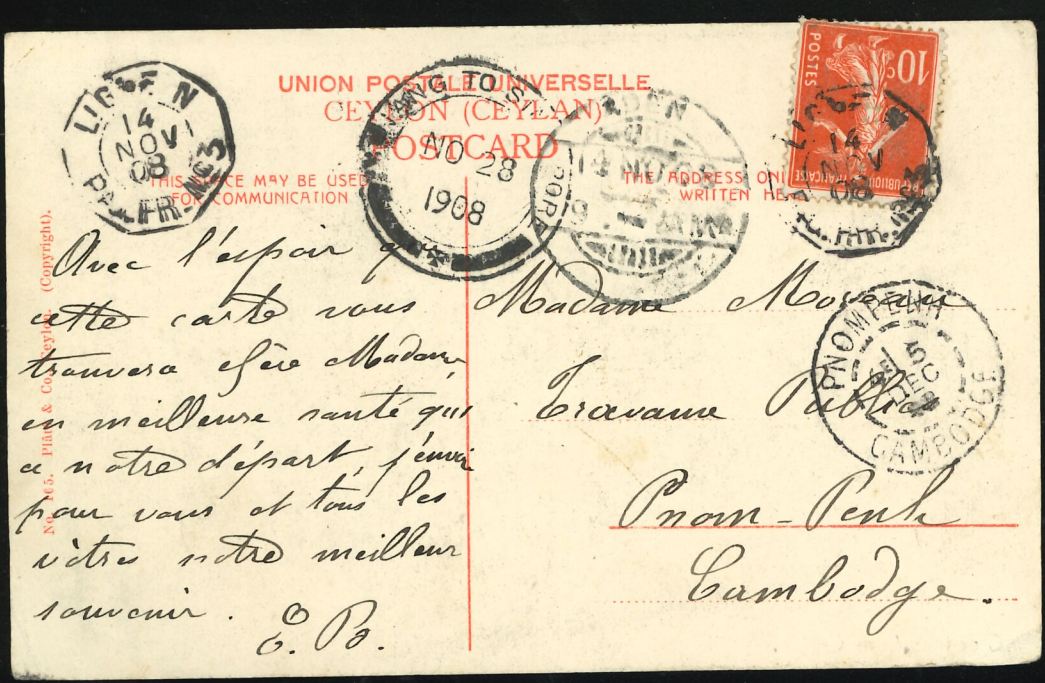 UNION POSTALE UNIVERSELLE
CEYLON (CEYLAN)
POSTCARD
THIS SPACE MAY BE USED
FOR COMMUNICATION
THE ADDRESS ONLY
WRITTEN HE
LIGNE N
14
NOV
08
PAQ. FR. No3
TO S
PORE
NO 28
1908
ADEN
14 NO 08
10c
POSTES
REPUBLIQUE FRANÇAISE
LIGNE N
14
NOV
08
FR. No3
PNOMPENH
5
DEC
CAMBODGE
No. 105. Plâté & Co. Ceylon. (Copyright).
Avec l'espoir que
cette carte vous
trouvera chère Madame
en meilleure santé qu'
a notre départ, j'envoie
pour vous et tous les
vôtres notre meilleur
souvenir.
E. B.
Madame Moreau
Travaux Publics
Pnom-Penh
Cambodge.